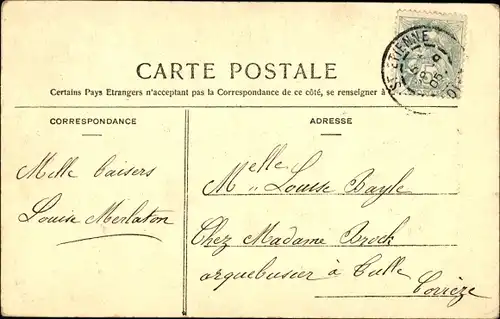 CARTE POSTALE
Certains Pays Etrangers n'acceptant pas la Correspondance de ce côté, se renseigner à
CORRESPONDANCE
ADRESSE
Mille baisers
Louise Merlaton
Melle Louise Bayle
Chez Madame Brock
arquebusier à Tulle
Corrèze
ST ETIENNE